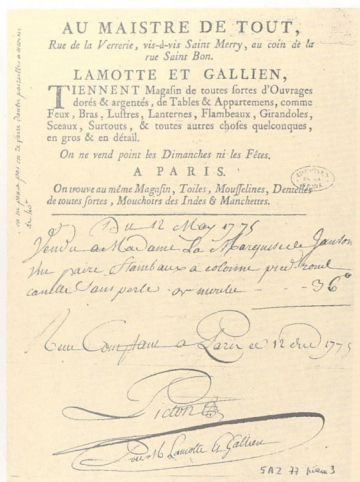 AU MAISTRE DE TOUT,
Rue de la Verrerie, vis-à-vis Saint Merry, au coin de la
rue Saint Bon.
LAMOTTE ET GALLIEN,
TIENNENT Magasin de toutes sortes d'Ouvrages
dorés & argentés, de Tables & Appartemens, comme
Feux, Bras, Lustres, Lanternes, Flambeaux, Girandoles,
Sceaux, Surtouts, & toutes autres choses quelconques,
en gros & en détail.
On ne vend point les Dimanches ni les Fêtes.
A PARIS.
On trouve au même Magasin, Toiles, Mousselines, Dentelles
de toutes sortes, Mouchoirs des Indes & Manchettes.
Du 12 May 1775
Vendu a Madame La Marquise de Janson
une paire flambaux a colonne pied rond
canelle sans perle or moulu - - - 36
Comptant a Paris ce 12 1775
Picton
Lamotte & Gallien
SAZ 77 piece 3